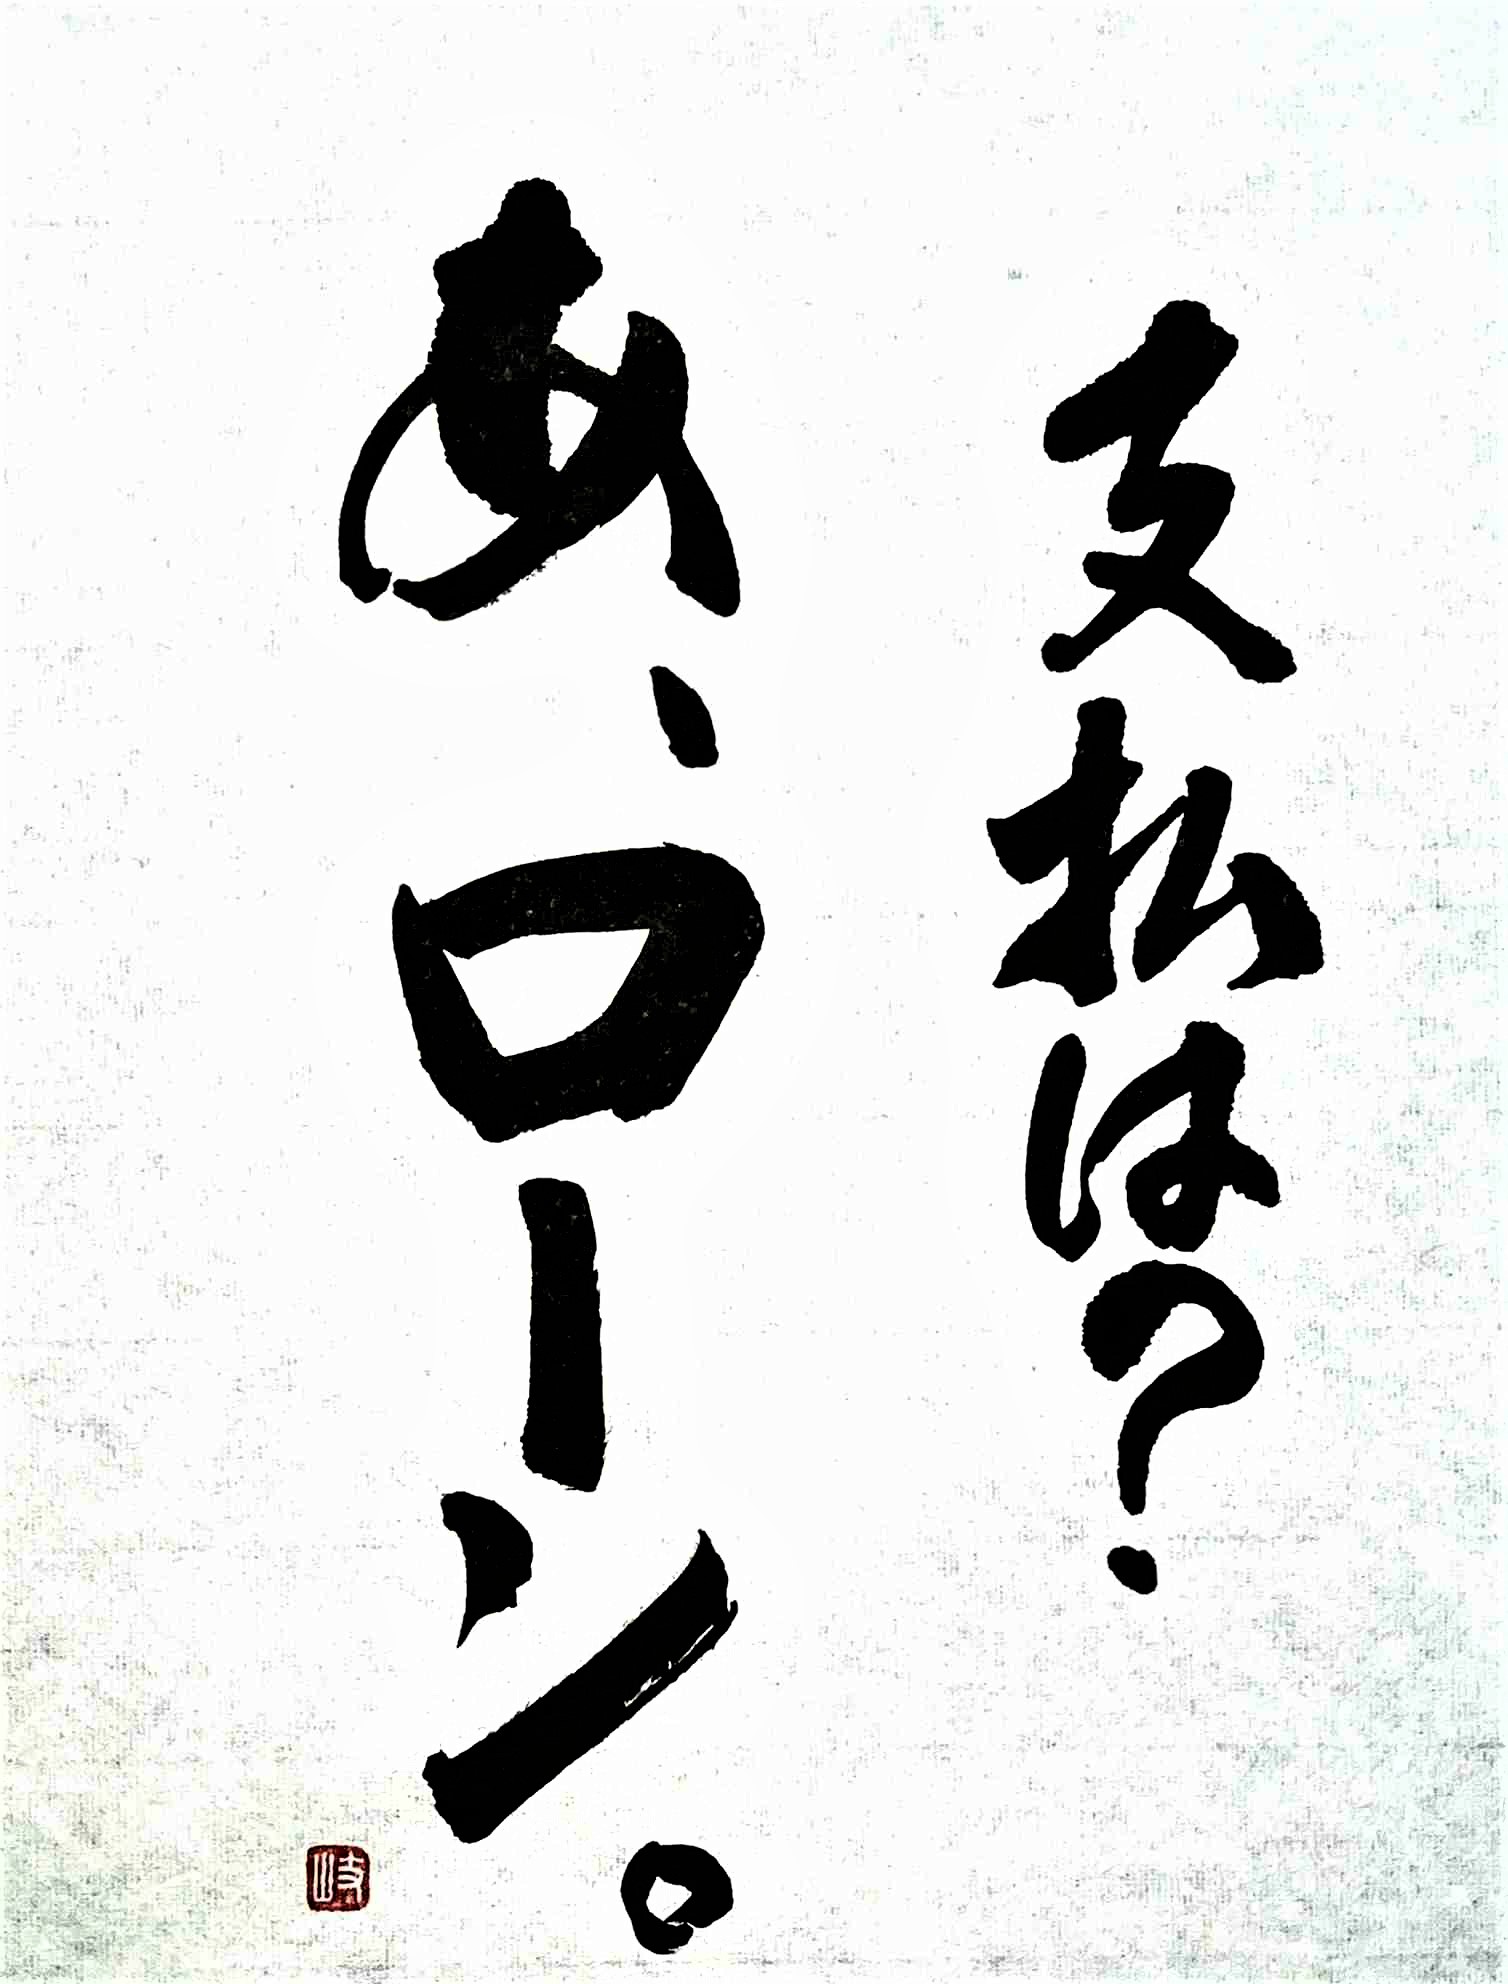 支払は?
あ、ローン。
岐